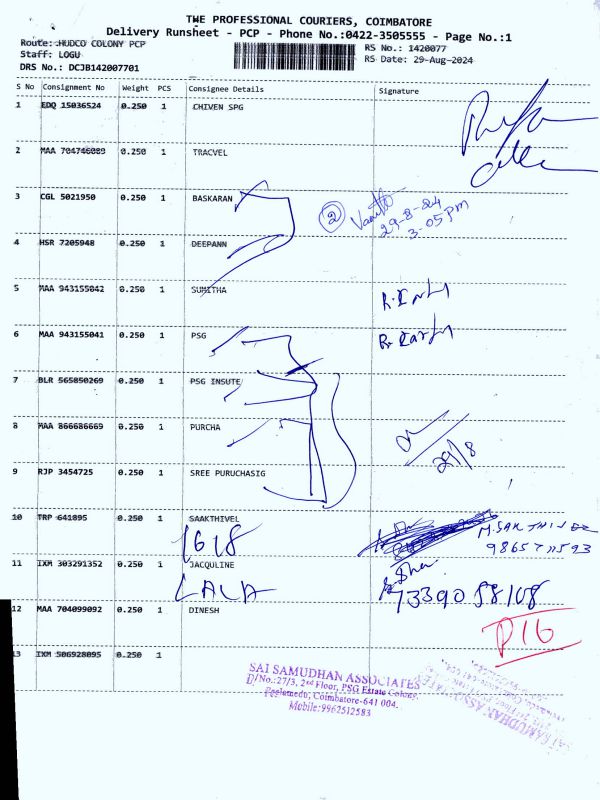 THE PROFESSIONAL COURIERS, COIMBATORE
Delivery Runsheet - PCP - Phone No.:0422-3505555 - Page No.:1
Route: HUDCO COLONY PCP
RS No.: 1420077
Staff: LOGU
RS Date: 29-Aug-2024
DRS No.: DCJB142007701
S No Consignment No Weight PCS Consignee Details Signature
1 EDQ 15036524 0.250 1 CHIVEN SPG
2 MAA 704746089 0.250 1 TRACVEL
3 CGL 5021950 0.250 1 BASKARAN
2
29-8-24
3-05pm
4 HSR 7205948 0.250 1 DEEPANN
5 MAA 943155042 0.250 1 SUMITHA
6 MAA 943155041 0.250 1 PSG
7 BLR 565850269 0.250 1 PSG INSUTE
8 MAA 866686669 0.250 1 PURCHA
29/8
9 RJP 3454725 0.250 1 SREE PURUCHASIG
10 TRP 641895 0.250 1 SAAKTHIVEL
1618
11 IXM 303291352 0.250 1 JACQULINE
LALA
7339058108
12 MAA 704099092 0.250 1 DINESH
P16
13 IXM 506928095 0.250 1
SAI SAMUDHAN ASSOCIATES
D/No.:27/3, 2nd Floor, PSG Estate Colony,
Peelamedu, Coimbatore-641 004.
Mobile:9962512583